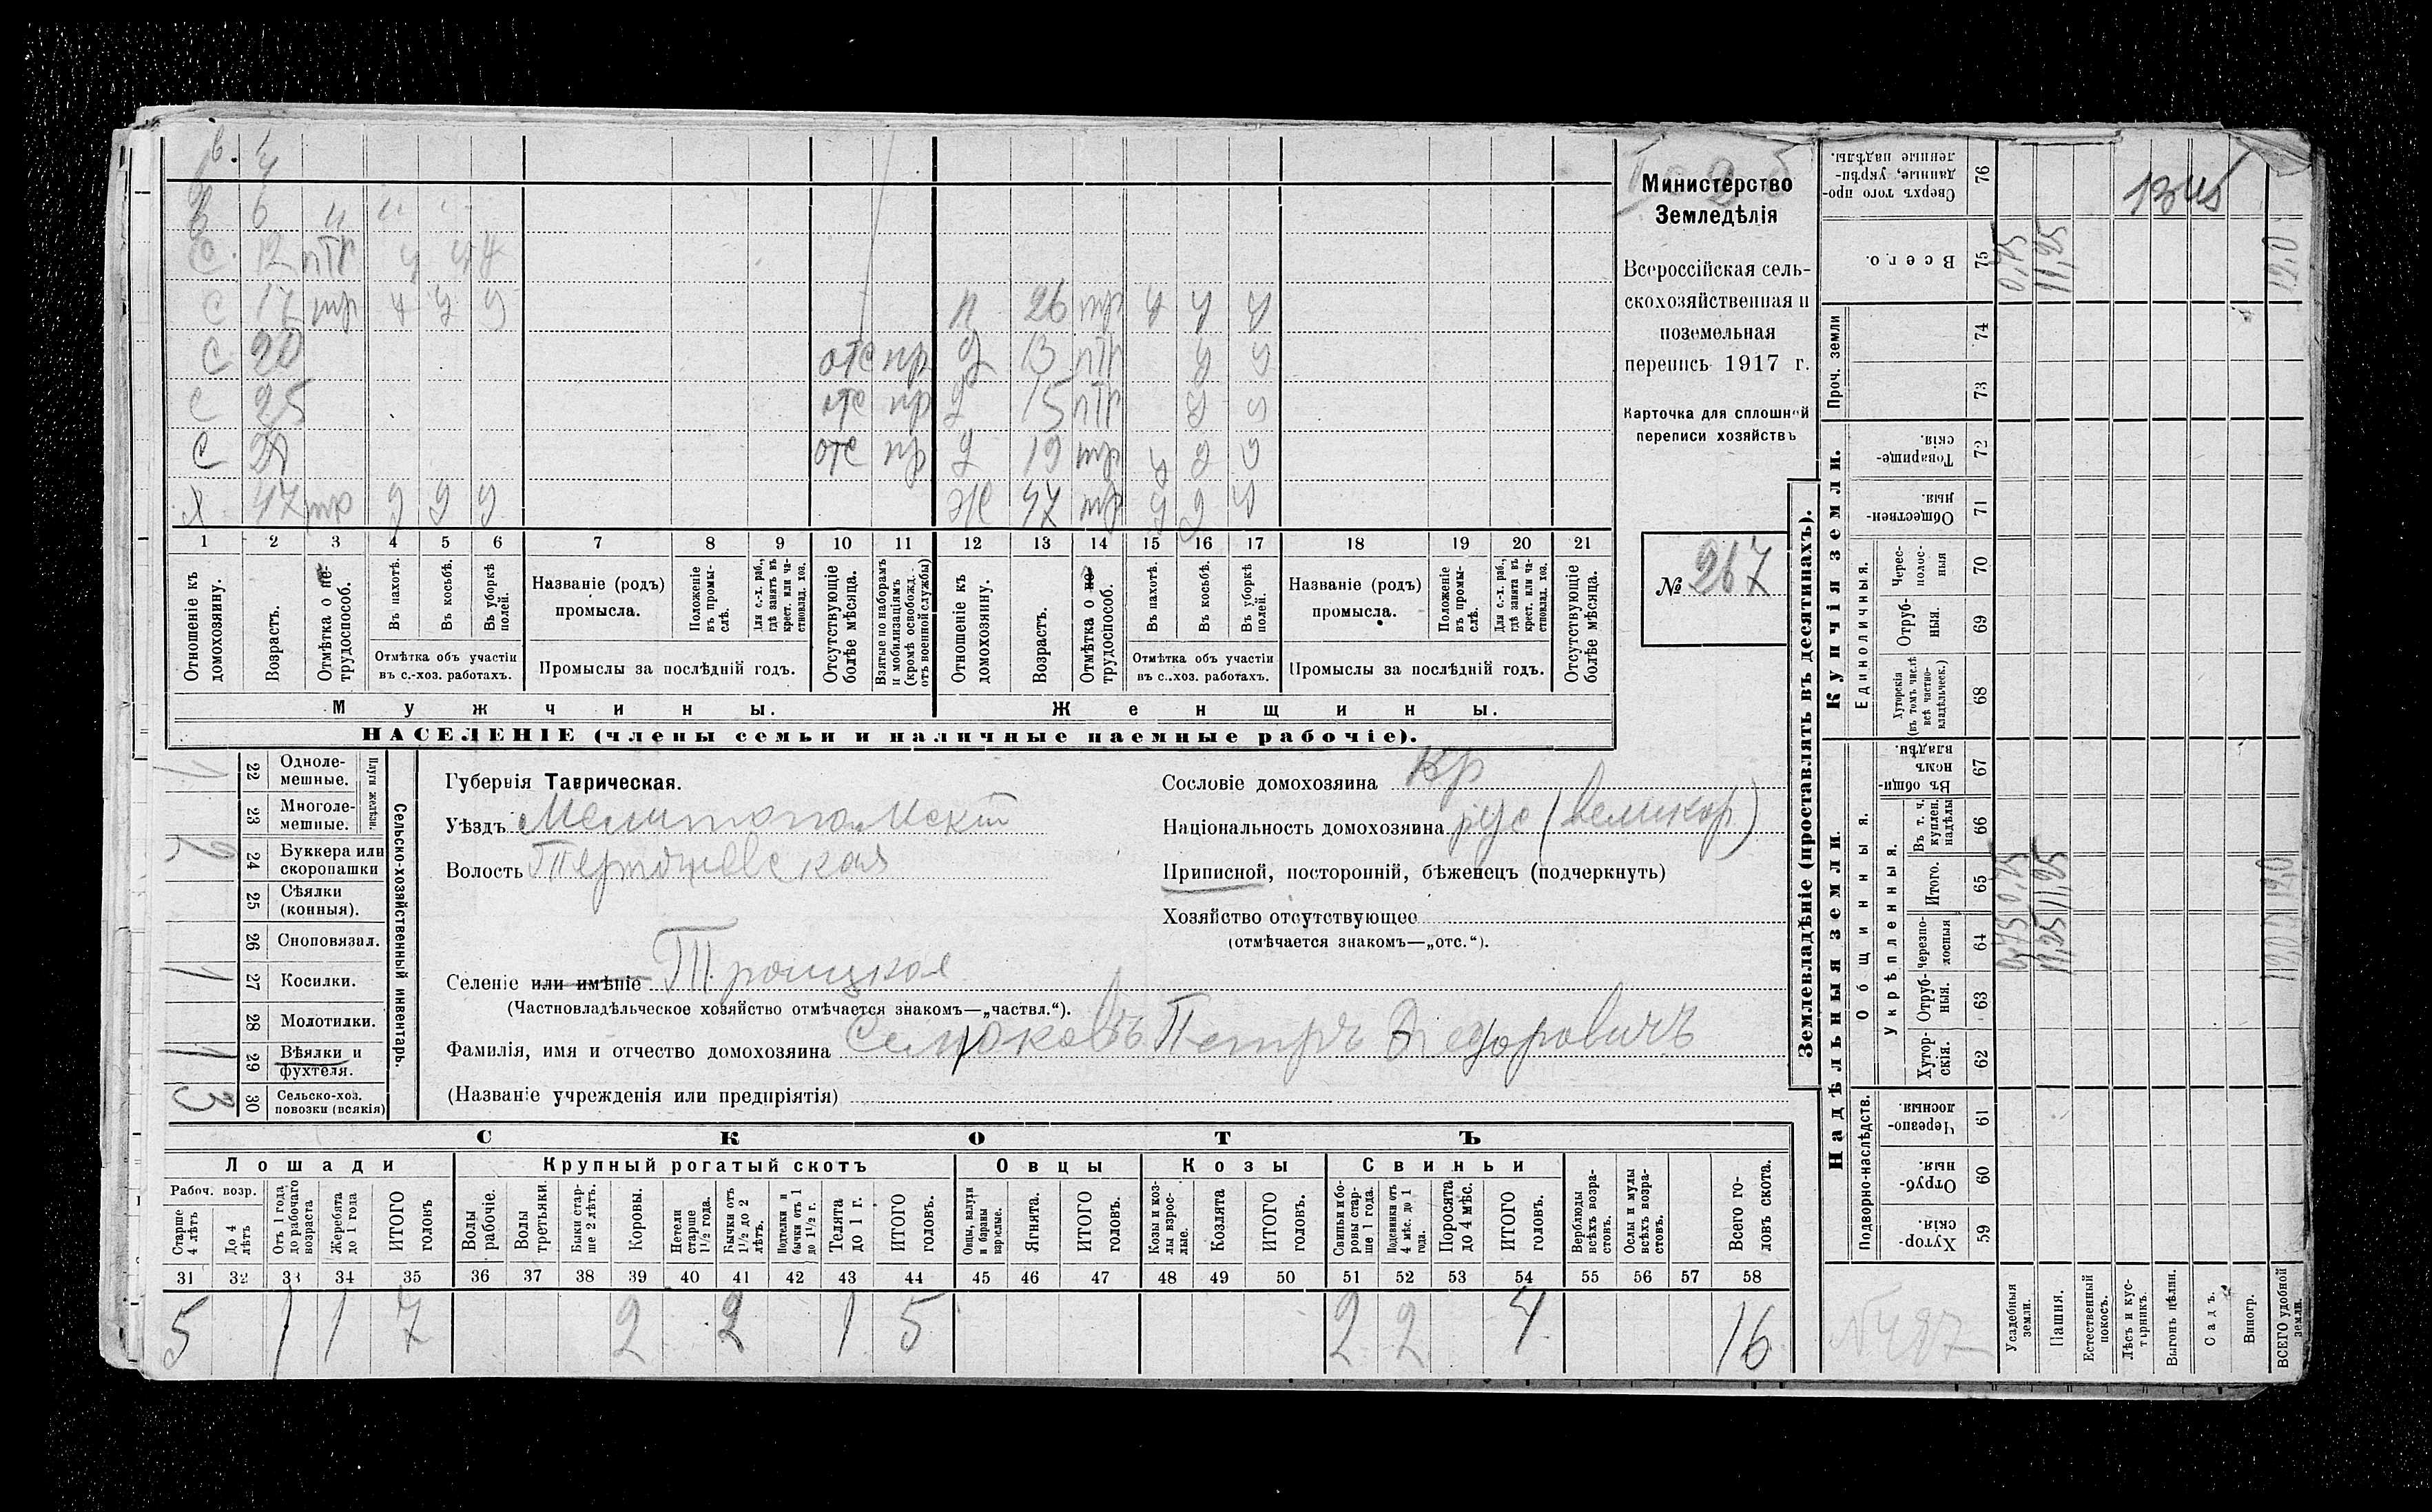 в. 1
4
в 6 " " "
с. 12 птр у у у
с 17 тр у у у н 26 тр у у у
с 20 отс пр д 13 птр у у
с 25 отс пр д 15 птр у у
с 27 отс пр д 19 тр у у у
х 47 тр у у у ж 47 тр у у у
1 2 3 4 5 6 7 8 9 10 11 12 13 14 15 16 17 18 19 20 21
Отношеніе къ домохозяину.
Возрастъ.
Отмѣтка о не-трудоспособ.
Въ пахотѣ.
Въ косьбѣ.
Въ уборкѣ полей.
Отмѣтка объ участіи въ с.-хоз. работахъ.
Названіе (родъ) промысла.
Положеніе въ промы-слѣ.
Для с.-х. раб., гдѣ занятъ въ крест. или ча-стновлад. хоз.
Промыслы за послѣдній годъ.
Отсутствующіе болѣе мѣсяца.
Взятые по наборамъ и мобилизаціямъ (кромѣ освобожд. отъ военной службы)
Отношеніе къ домохозяину.
Возрастъ.
Отмѣтка о не-трудоспособ.
Въ пахотѣ.
Въ косьбѣ.
Въ уборкѣ полей.
Отмѣтка объ участіи въ с.-хоз. работахъ.
Названіе (родъ) промысла.
Положеніе въ промы-слѣ.
Для с.-х. раб., гдѣ занятъ въ крест. или ча-стновлад. хоз.
Промыслы за послѣдній годъ.
Отсутствующіе болѣе мѣсяца.
Мужчины. Женщины.
НАСЕЛЕНІЕ (члены семьи и наличные наемные рабочіе).
Министерство
Земледѣлія
Всероссійская сель-
скохозяйственная и
поземельная
перепись 1917 г.
Карточка для сплошной
переписи хозяйствъ
№ 267
Сельско-хозяйственный инвентарь.
Плуги желѣзн.
1 22 Одноле-мешные.
23 Многоле-мешные.
2 24 Буккера или скоропашки
25 Сѣялки (конныя).
26 Сноповязал.
1 27 Косилки.
28 Молотилки.
1 29 Вѣялки и фухтеля.
3 30 Сельско-хоз. повозки (всякія)
Губернія Таврическая.
Уѣздъ Мелитопольскій
Волость
Селеніе или имѣніе Троицкое
(Частновладѣльческое хозяйство отмѣчается знакомъ—„частвл.“).
Фамилія, имя и отчество домохозяина Петръ Федоровичъ
(Названіе учрежденія или предпріятія)
Сословіе домохозяина кр
Національность домохозяина рус (великор)
Приписной, посторонній, бѣженецъ (подчеркнуть)
Хозяйство отсутствующее
(отмѣчается знакомъ—„отс.“).
СКОТЪ
Лошади Крупный рогатый скотъ Овцы Козы Свиньи
Рабоч. возр.
Старше 4 лѣтъ
До 4 лѣтъ
Отъ 1 года до рабочаго возраста
Жеребята до 1 года
ИТОГО головъ
Волы рабочіе.
Волы третьяки.
Быки стар-ше 2 лѣтъ.
Коровы.
Нетели старше 1½ года.
Бычки отъ 1½ до 2 лѣтъ.
Подтелки и бычки отъ 1 до 1½ г.
Телята до 1 г.
ИТОГО головъ.
Овцы, валухи и бараны взрослые.
Ягнята.
ИТОГО головъ.
Козы и коз-лы взрос-лые.
Козлята
ИТОГО головъ.
Свиньи и бо-ровы стар-ше 1 года.
Подсвинки отъ 4 мѣс. до 1 года.
Поросята до 4 мѣс.
ИТОГО головъ.
Верблюды всѣхъ возра-стовъ.
Ослы и мулы всѣхъ возра-стовъ.
Всего го-ловъ скота.
31 32 33 34 35 36 37 38 39 40 41 42 43 44 45 46 47 48 49 50 51 52 53 54 55 56 57 58
5 1 1 7 2 2 1 5 2 2 4 16
Землевладѣніе (проставлять въ десятинахъ).
Купчія земли.
Сверхъ того про-данные, укрѣп-ленные надѣлы. 76
Всего. 75 0,75 11,25 12,0
Проч. земли 74 73
Товарище-скія. 72
Обществен-ныя. 71
Единоличныя.
Черес-полос-ныя 70
Отруб-ныя. 69
Хуторскія (въ томъ числѣ всѣ частно-владѣльческ.) 68
Надѣльныя земли.
Общинныя.
Въ общи-номъ владѣн. 67
Укрѣпленныя.
Въ т. ч. куплен. надѣлы 66
Итого. 65 0,75 11,25 12,0
Черезпо-лосныя 64 0,75 11,25 12,0
Отруб-ныя. 63
Хутор-скія. 62
Подворно-наслѣдств.
Черезпо-лосныя. 61
Отруб-ныя. 60
Хутор-скія. 59
Усадебныя земли.
Пашня.
Естественный покосъ.
Лѣсъ и кус-тарникъ.
Выгонъ цѣлин.
Садъ.
Виногр.
ВСЕГО удобной земли.
1345
№ 487